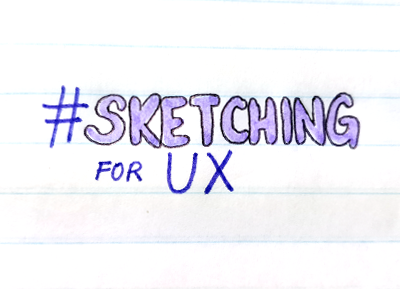 #SKETCHING
FOR UX